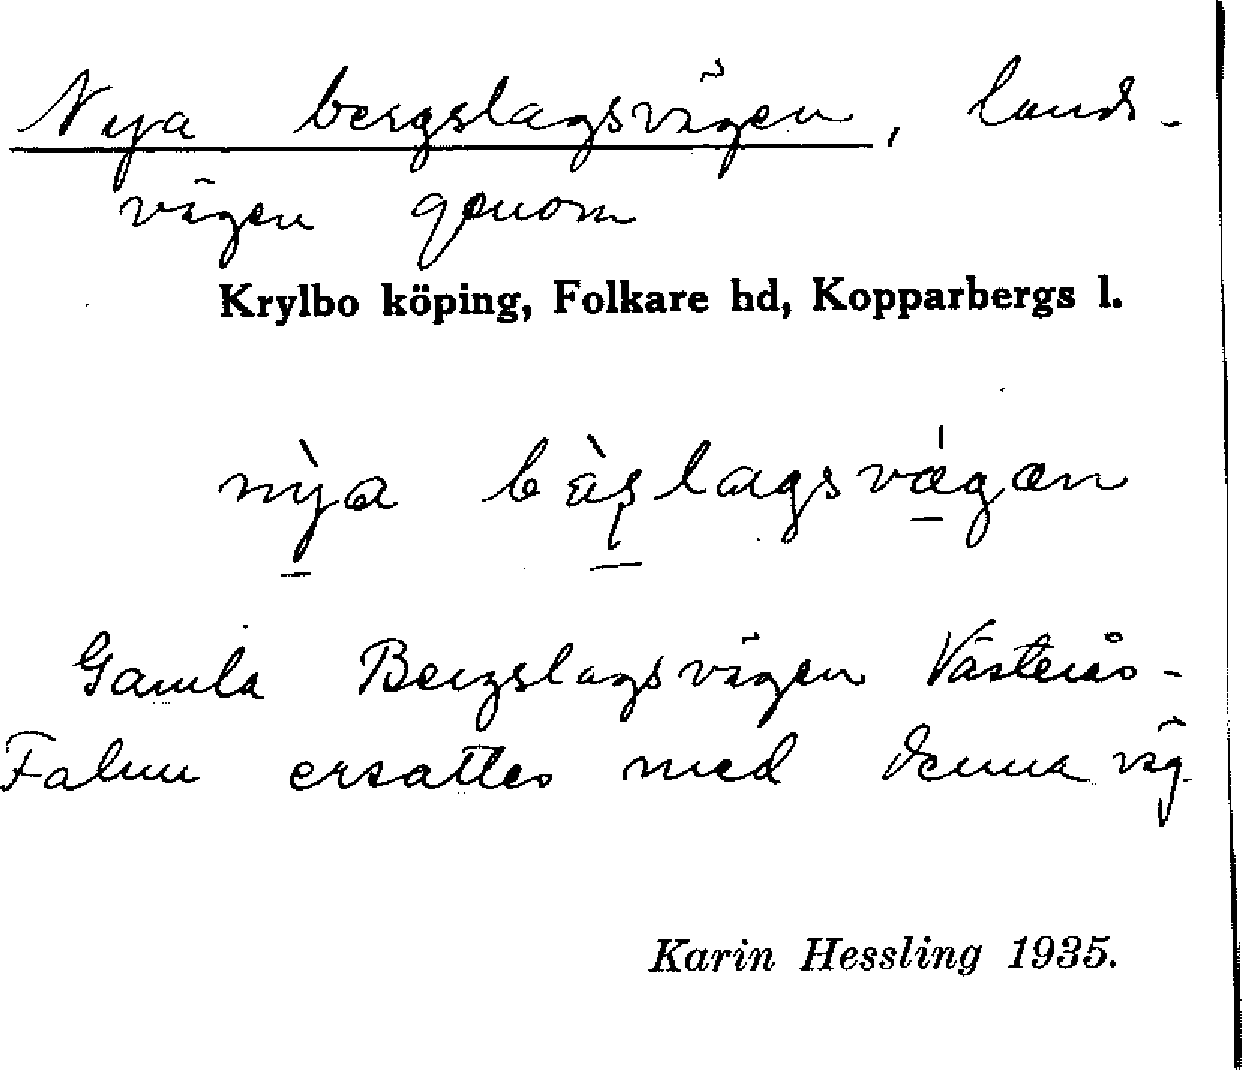 Nya bergslagsvägen, lands-
vägen genom
Krylbo köping, Folkare hd, Kopparbergs l.
nỳa bä̀ʂlagsvǽgæn
Gamla Bergslagsvägen Västerås-
Falun ersattes med denna väg
Karin Hessling 1935.